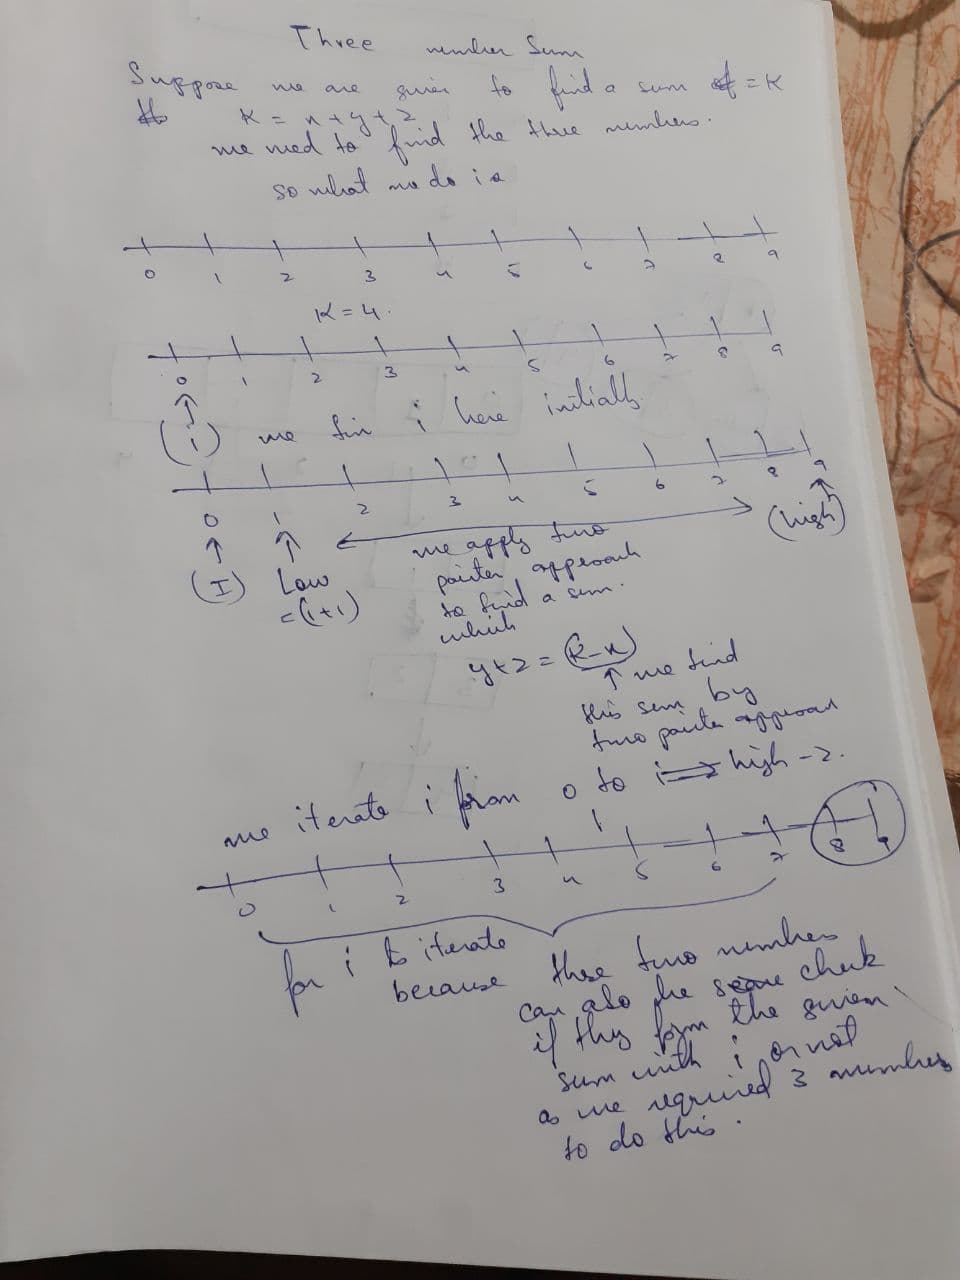 Three number Sum
Suppose we are given to find a sum = K
K = x + y + z
we need to find the three numbers.
so what we do is
0 1 2 3 4 5 6 7 8 9
K = 4.
0 1 2 3 4 5 6 7 8 9
(i) we fix i here initially
0 1 2 3 4 5 6 7 8 9
(I) Low = (i+1) (high)
we apply two
pointer approach
to find a sum.
which
y + z = (K - x)
we find
this sum by
two pointer approach
we iterate i from 0 to i => high - 2.
0 1 2 3 4 5 6 7 8 9
for i to iterate
because these two numbers
can also be check
if they form the given
sum with i or not
as we required 3 numbers
to do this.